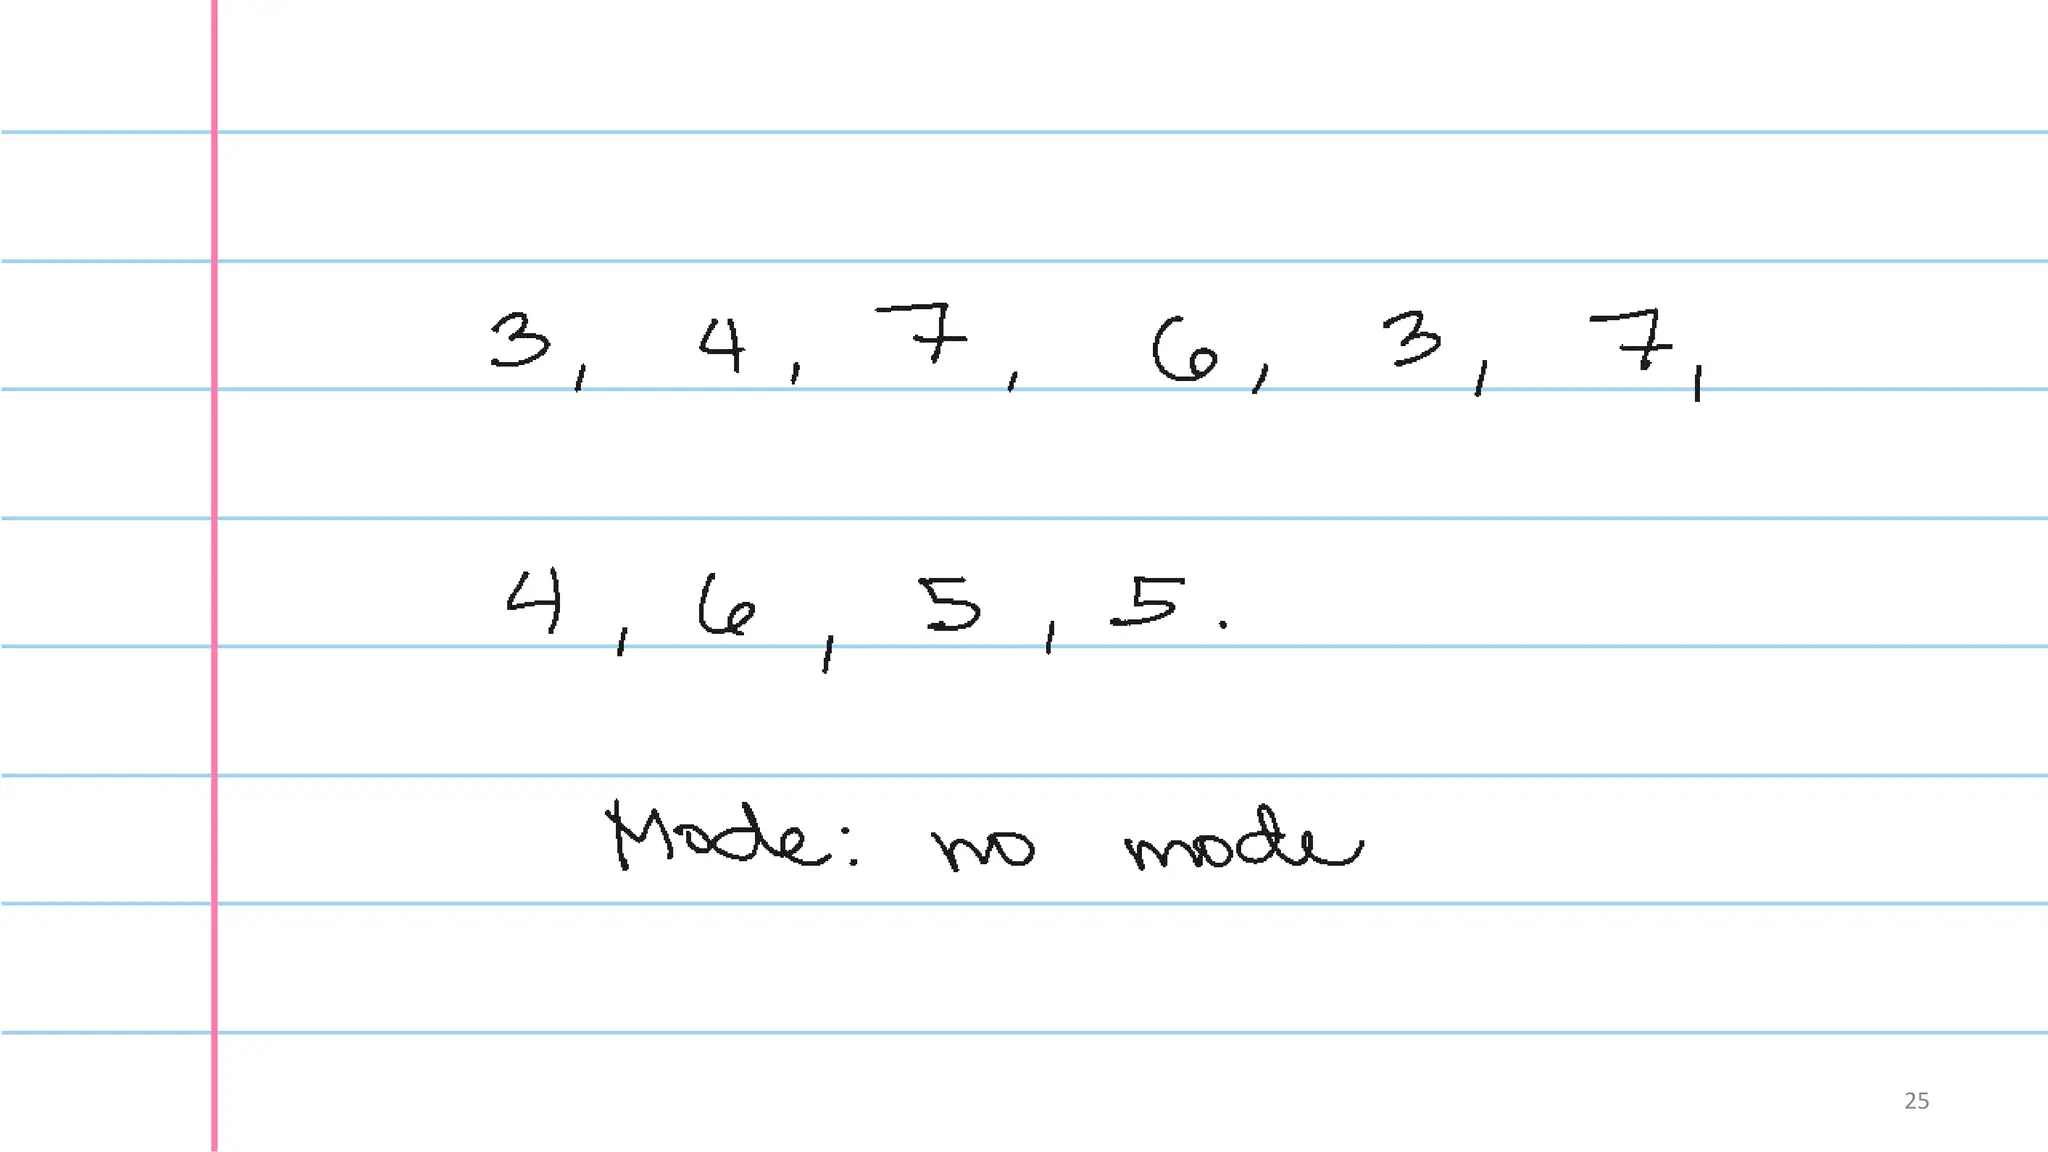 3, 4, 7, 6, 3, 7,
4, 6, 5, 5.
Mode: no mode
25